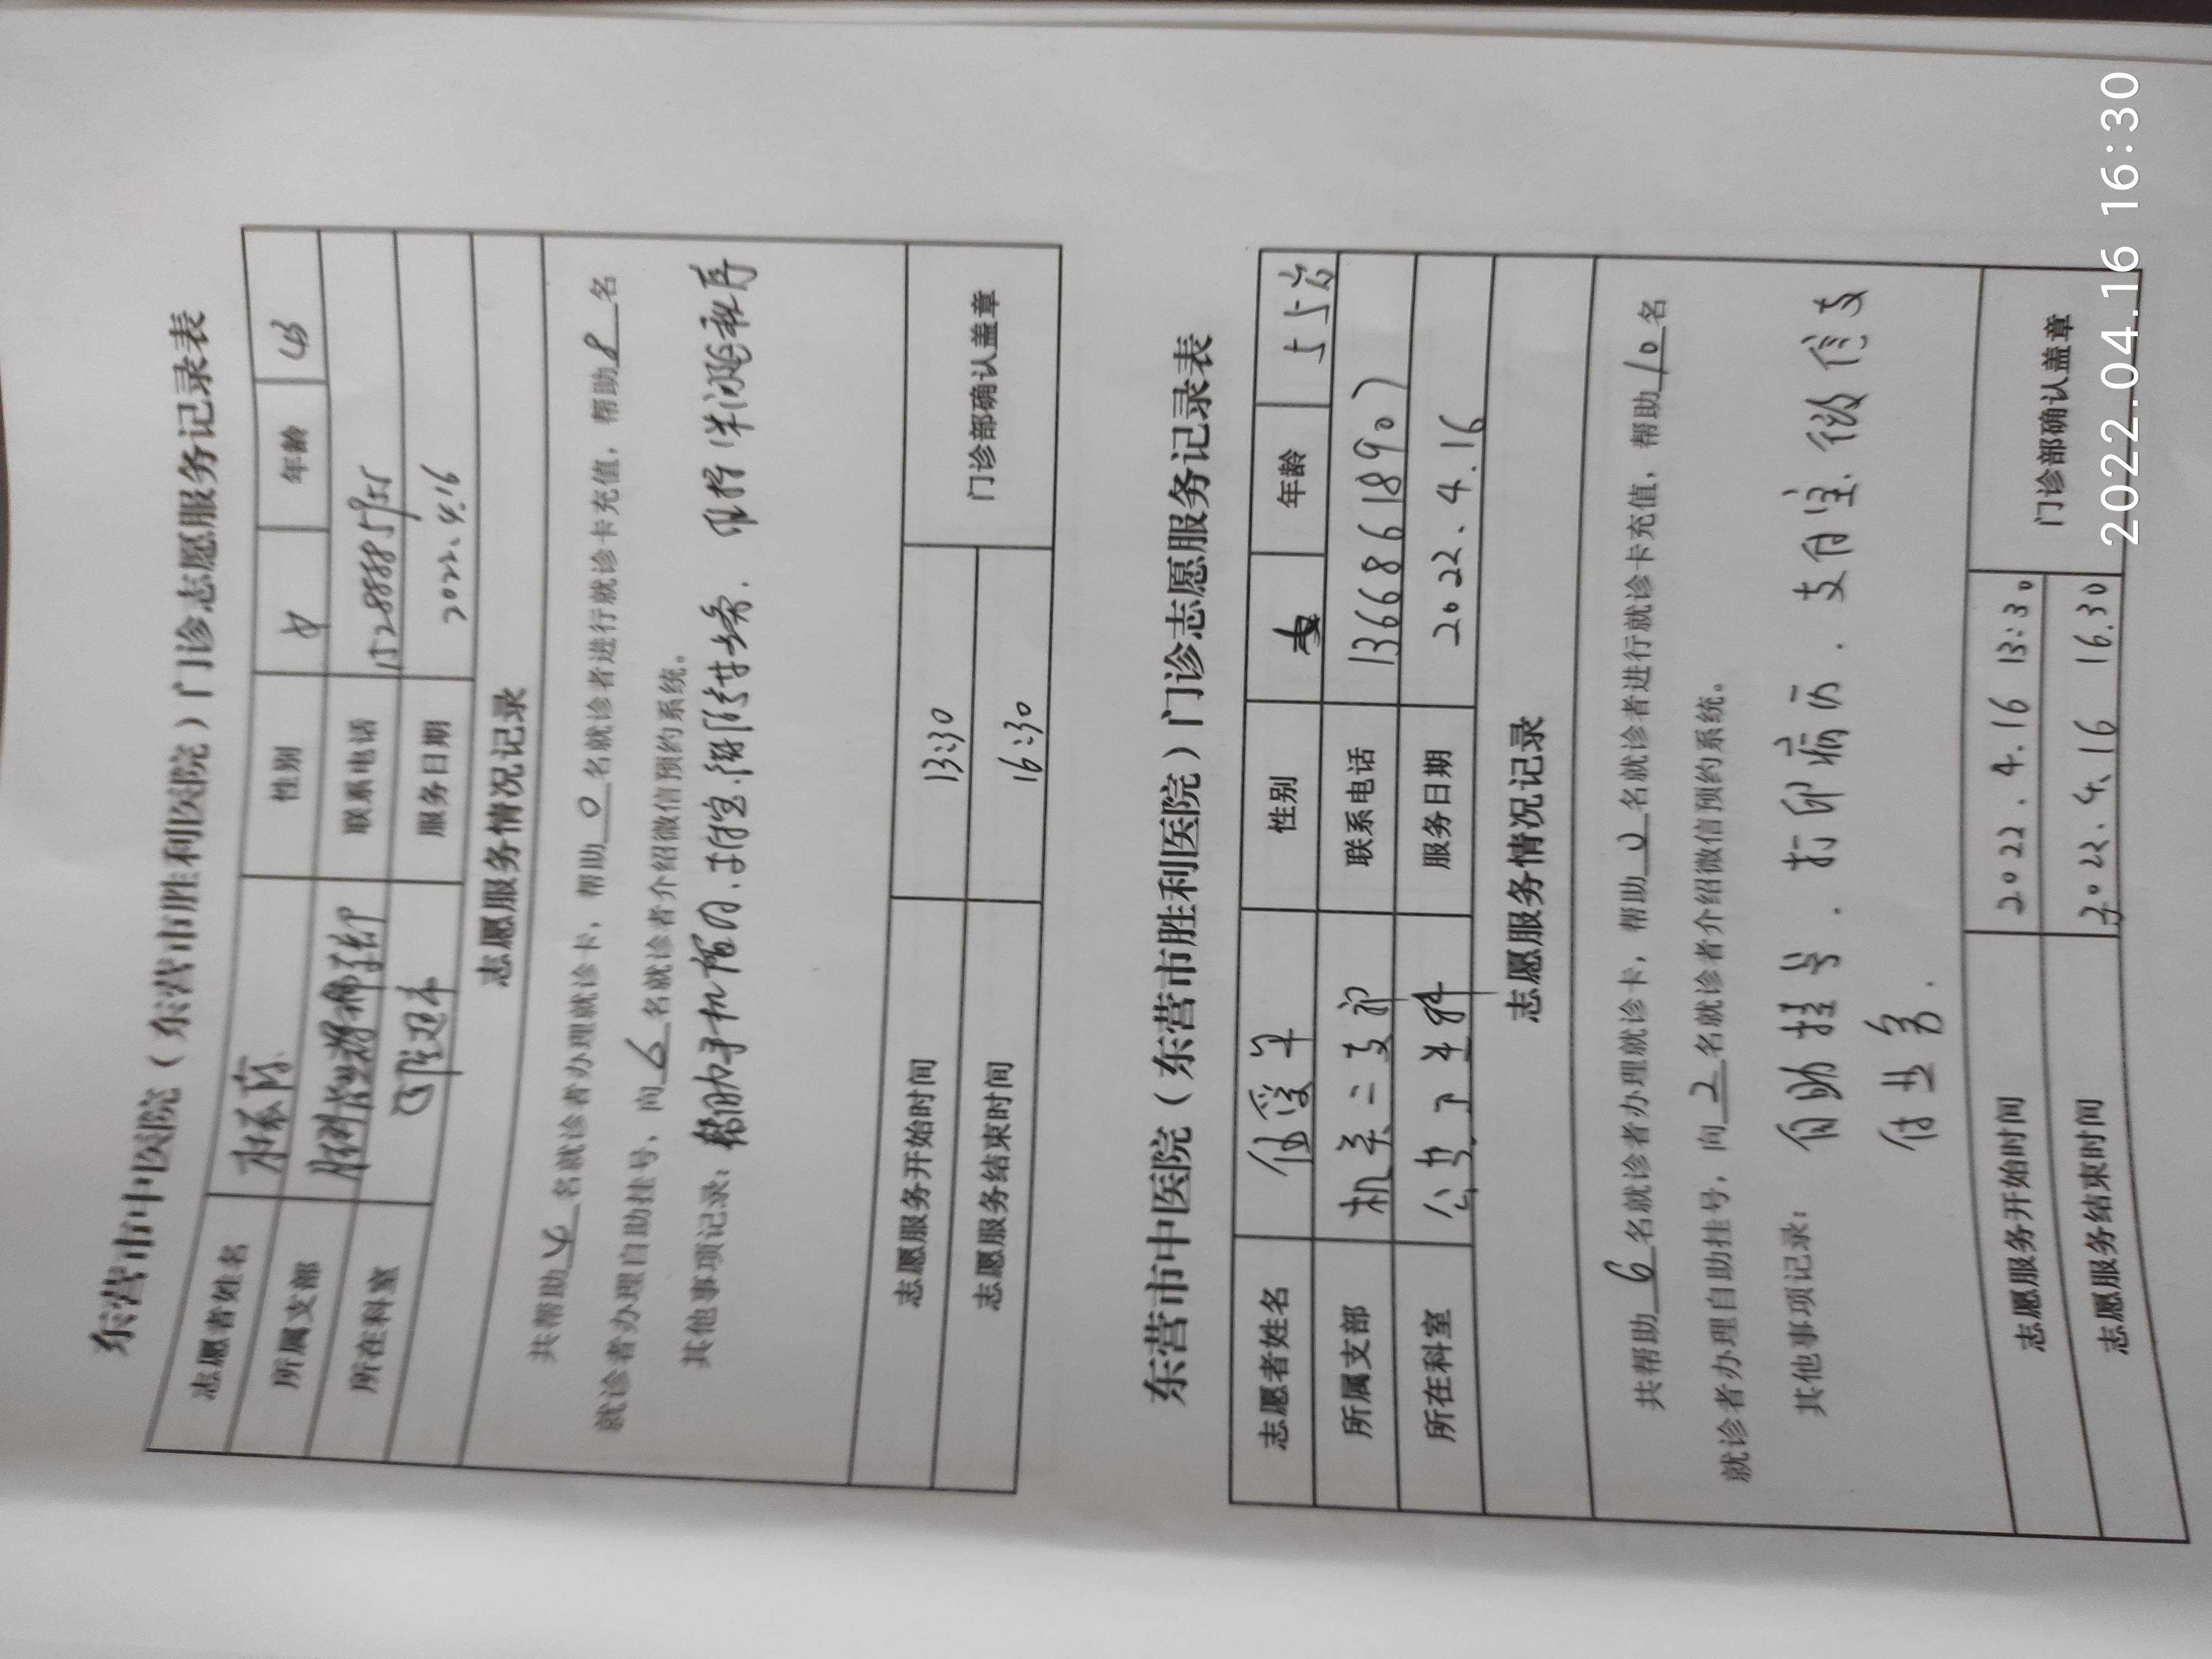 东营市中医院（东营市胜利医院）门诊志愿服务记录表
志愿者姓名 性别 女 年龄
所属支部 联系电话
所在科室 服务日期 2022.4.16
志愿服务情况记录
共帮助 名就诊者办理就诊卡，帮助 0 名就诊者进行就诊卡充值，帮助 8 名
就诊者办理自助挂号，向 6 名就诊者介绍微信预约系统。
其他事项记录：帮助手机预约.
志愿服务开始时间 13:30 门诊部确认盖章
志愿服务结束时间 16:30
东营市中医院（东营市胜利医院）门诊志愿服务记录表
志愿者姓名 性别 年龄 55岁
所属支部 机关二支部 联系电话 13668618907
所在科室 公共卫生科 服务日期 2022.4.16
志愿服务情况记录
共帮助 6 名就诊者办理就诊卡，帮助 0 名就诊者进行就诊卡充值，帮助 10 名
就诊者办理自助挂号，向 2 名就诊者介绍微信预约系统。
其他事项记录： 自助挂号. 打印病历. 支付宝.微信支
付业务.
志愿服务开始时间 2022.4.16 13:30 门诊部确认盖章
志愿服务结束时间 2022.4.16 16.30
2022.04.16 16:30